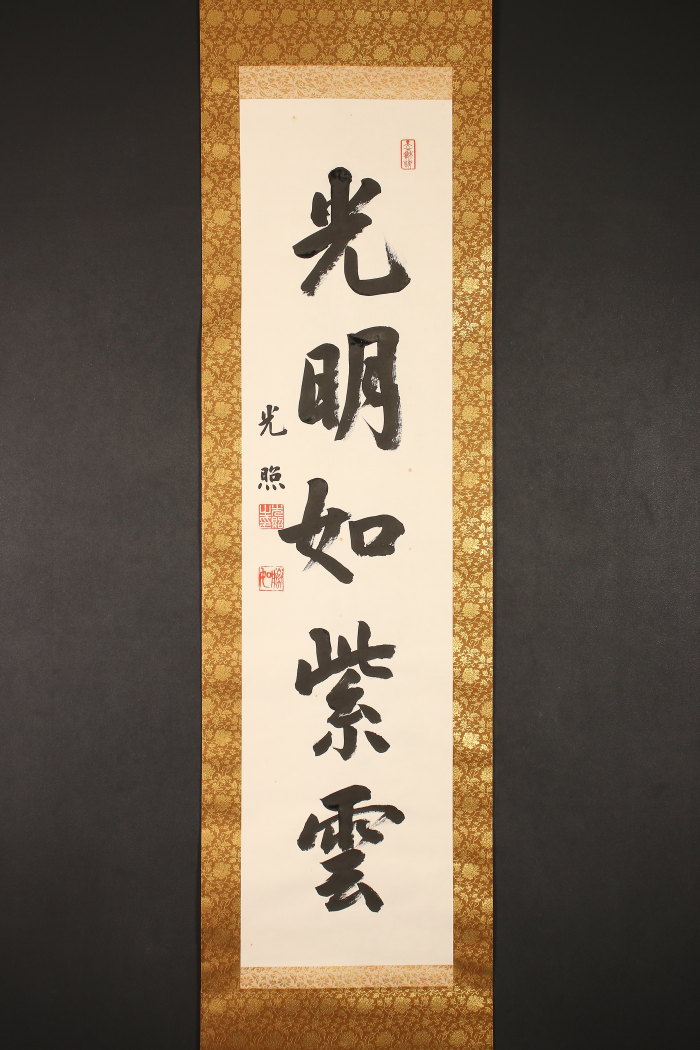 光明如紫雲
光照